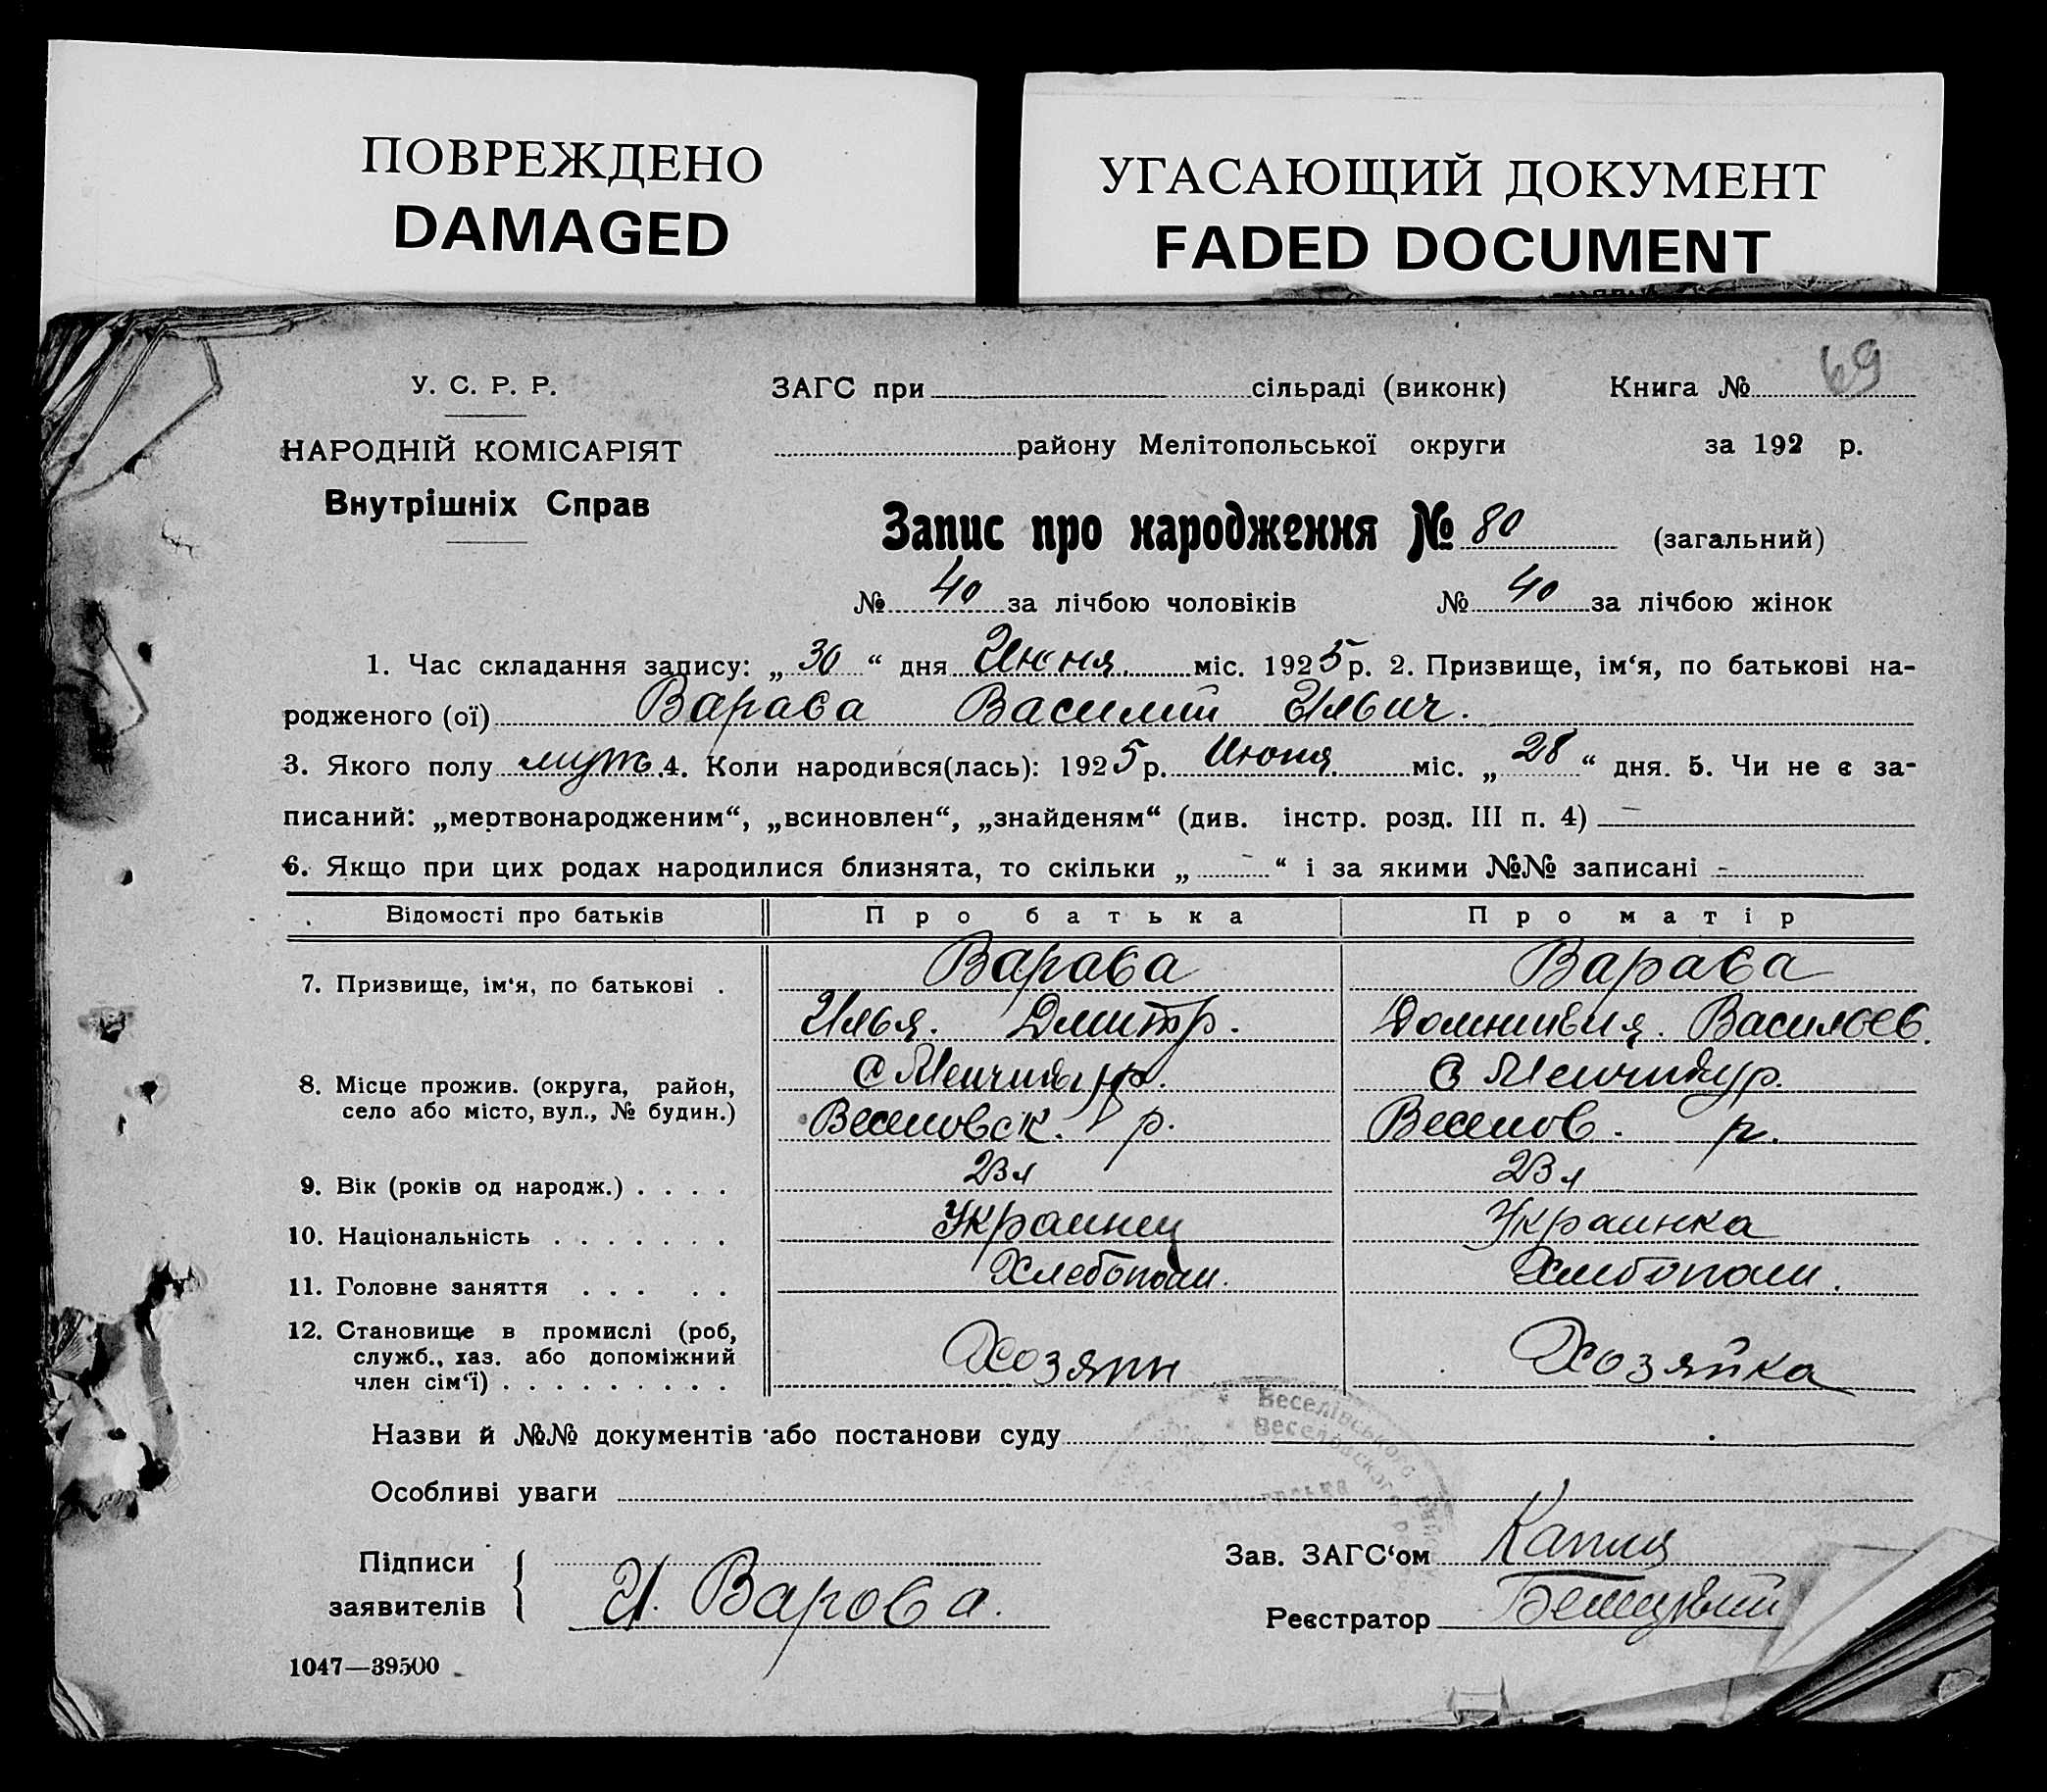 ПОВРЕЖДЕНО
DAMAGED
УГАСАЮЩИЙ ДОКУМЕНТ
FADED DOCUMENT
69
У. С. Р. Р.
ЗАГС при сільраді (виконк)
Книга №
НАРОДНІЙ КОМІСАРІЯТ
району Мелітопольської округи
за 192 р.
Внутрішніх Справ
Запис про народження № 80 (загальний)
№ 40 за лічбою чоловіків № 40 за лічбою жінок
1. Час складання запису: „30“ дня Июня міс. 1925 р. 2. Призвище, ім‘я, по батькові на-
родженого (ої) Варава Василий Ильич.
3. Якого полу муж. 4. Коли народився(лась): 1925 р. Июня міс. „28“ дня. 5. Чи не є за-
писаний: „мертвонародженим“, „всиновлен“, „знайденям“ (див. інстр. розд. III п. 4) —
6. Якщо при цих родах народилися близнята, то скільки „ - “ і за якими №№ записані -
Відомості про батьків Про батька Про матір
7. Призвище, ім‘я, по батькові . Варава Варава
Илья. Дмитр. Домникия. Васильев.
8. Місце прожив. (округа, район,
село або місто, вул., № будин.)
С Менчикур. С Менчикур.
Веселовск. р. Веселов. р.
9. Вік (років од народж.) . . . . 23 л 23 л
10. Національність . . . . . . . Украинец Украинка
11. Головне заняття . . . . . Хлебопаш. Хлебопаш.
12. Становище в промислі (роб,
служб., хаз. або допоміжний
член сім‘ї) . . . . . . . . .
Хозяин Хозяйка
Назви й №№ документів або постанови суду
Веселівського
Веселовского
Особливі уваги
Підписи
заявителів
И. Варова.
Зав. ЗАГС‘ом Капля
Реєстратор
1047—39500